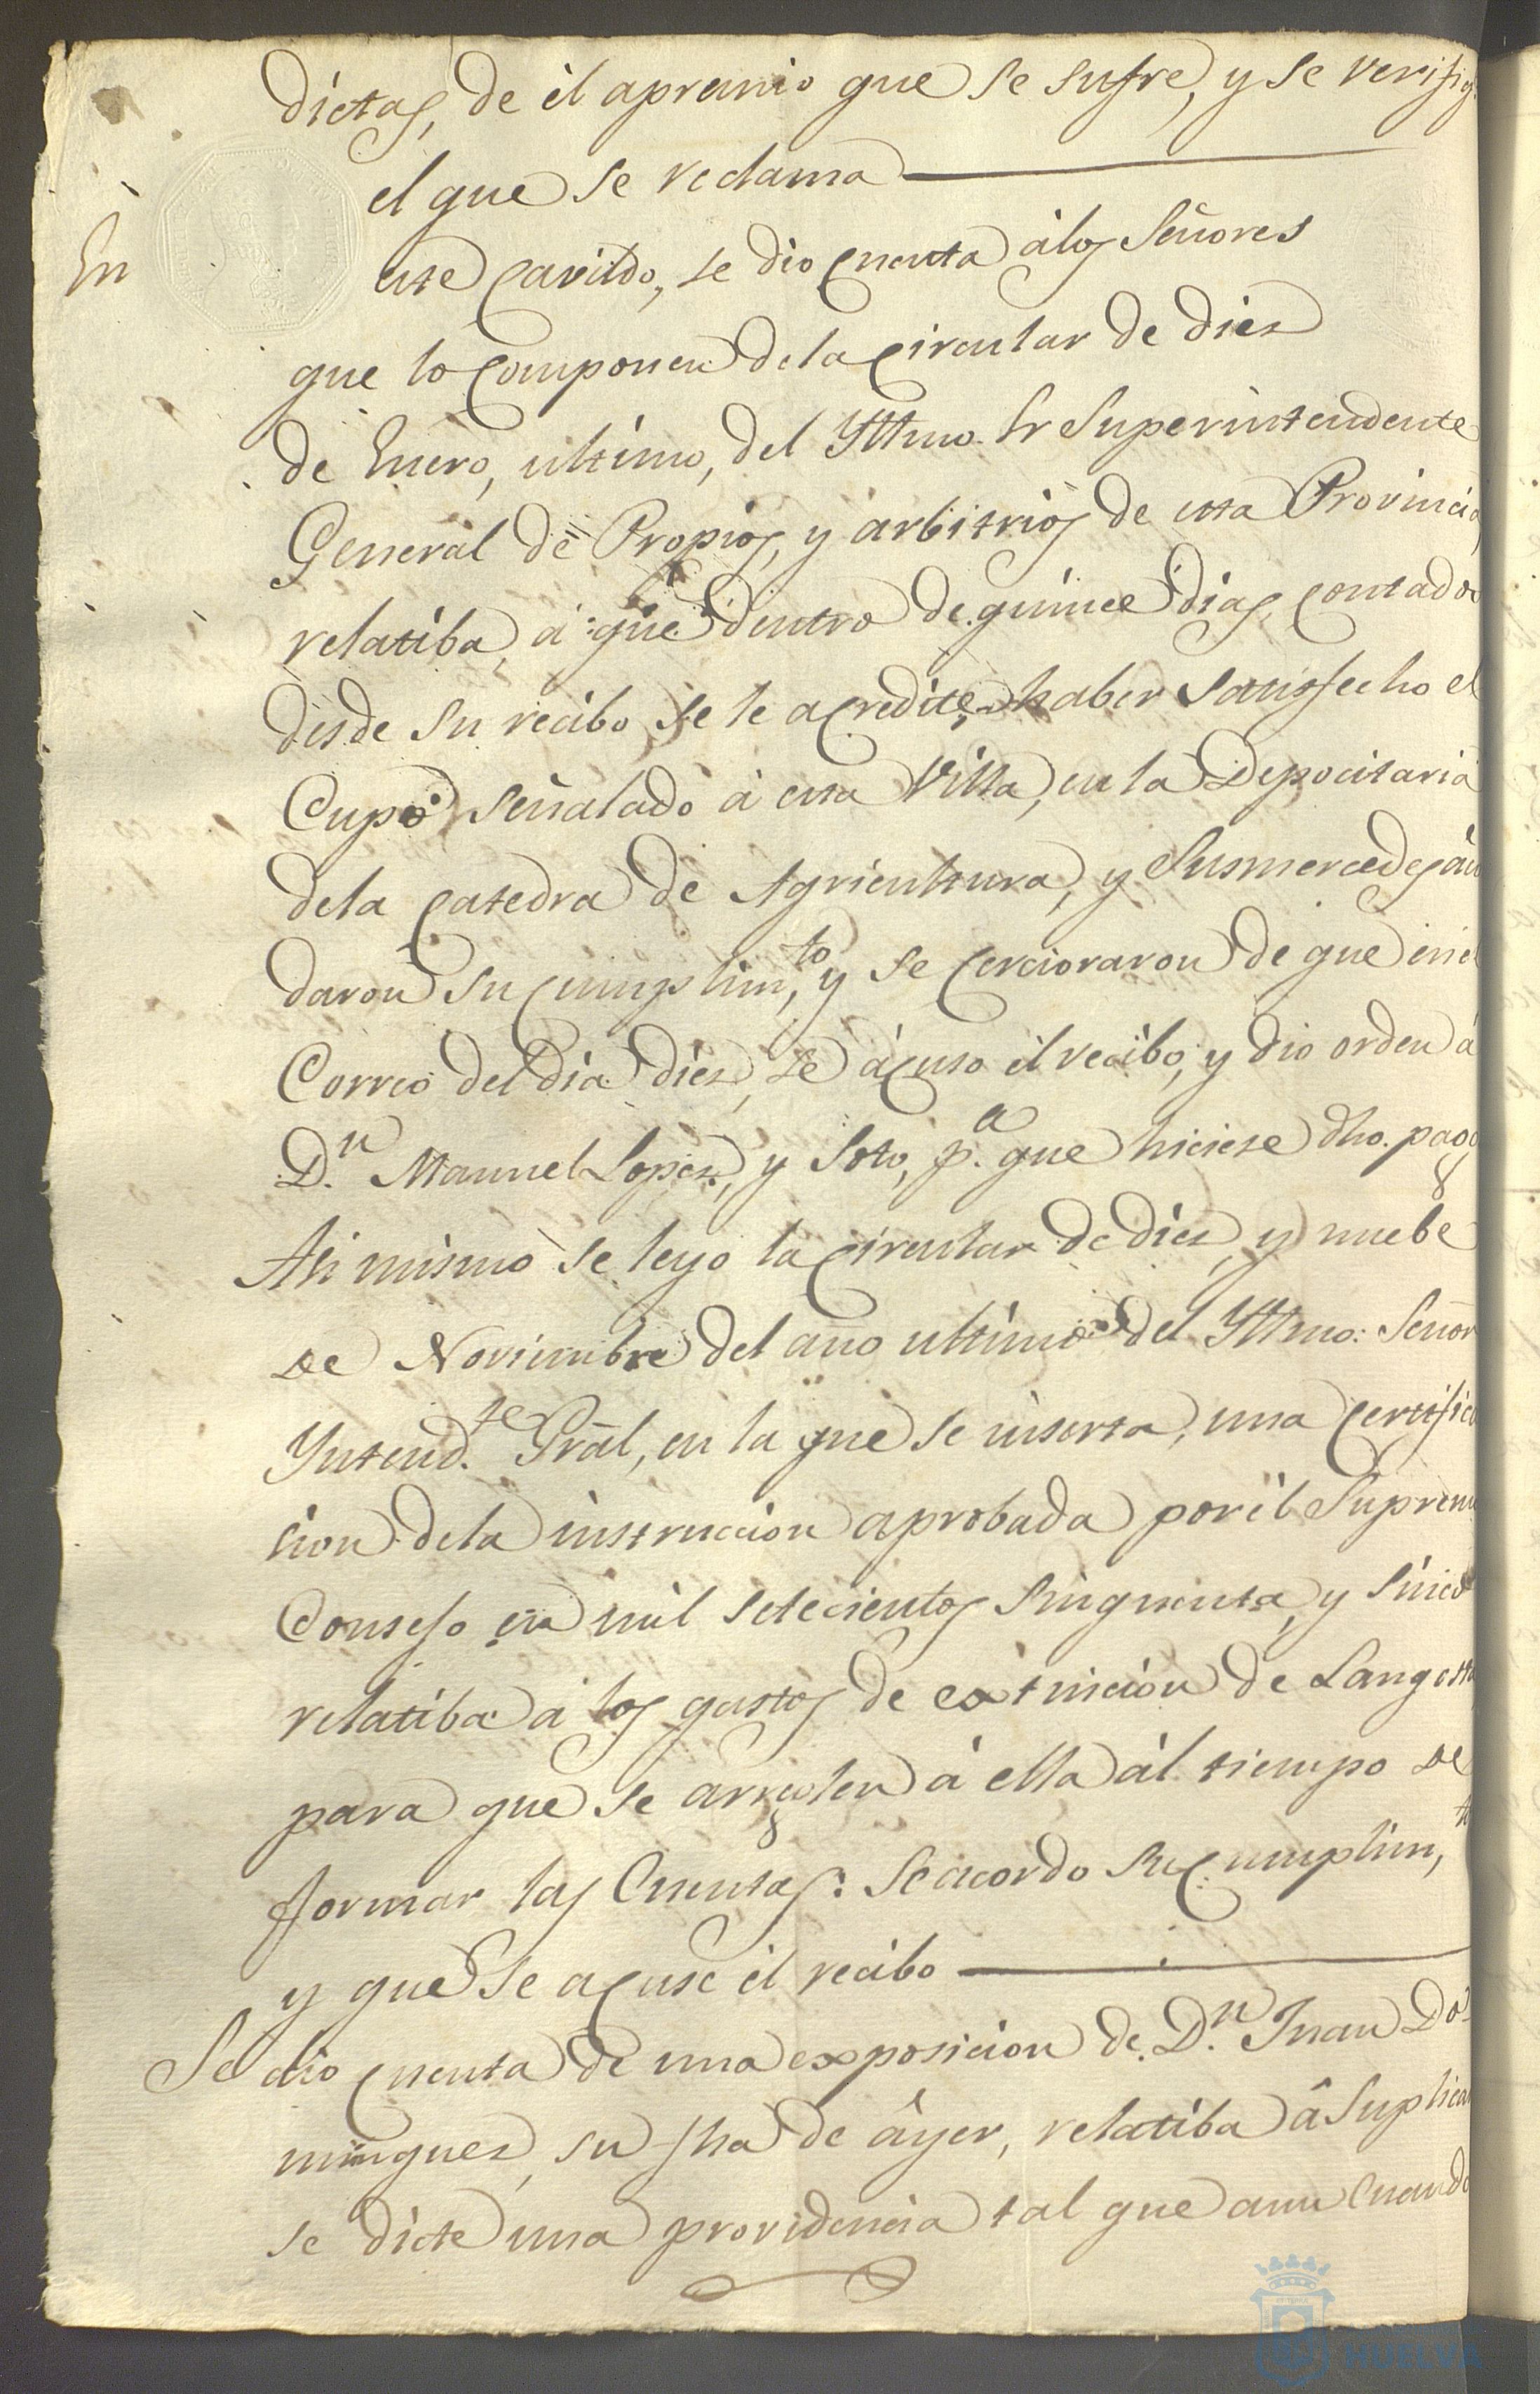 dictas, de èl apremio que se sufre, y se verifiq.
el que se reclama
En este Cavildo, se dio Cuenta àlos Señores
que lo Componen dela Circular de dies
de Enero, ultimo, del Yltmo. Sr Superintendente
General de Propios, y arbitrios de esta Provincia
relatiba, à que dentro de quince dias, contados
desde su recibo se le acredite haber satisfecho el
Cupo señalado à esta Villa, en la Depocitaria
dela Catedra de Agricultura, y Susmercedes àn
daron su Cumplim,to y se Cercioraron de que en el
Correo del dia dies, se àcuso èl recibo, y dio orden à
D.n Manuel Lopes, y Soto, p.a que hiciese dho. pago
Asi mismo se leyo la Circular de dies, y nuebe
de Noviembre del año ultimo del Yltmo: Señor
Yntend.te Grãl, en la que se inserta, una Certifica
cion dela instruccion aprobada por èl Supremo
Consejo en mil setecientos Sinquenta, y Sinco
relatiba à los gastos de extinción de Langosta
para que se arreglen à ella àl tiempo de
formar las Cuentas: Se acordo su Cumplim,to
y que se acuse èl recibo
Se dio Cuenta de una exposicion de D.n Juan Do
mingues, su fha de àyer, relatiba â Suplicar
se dicte una providencia tal que aun Cuando
HUELVA